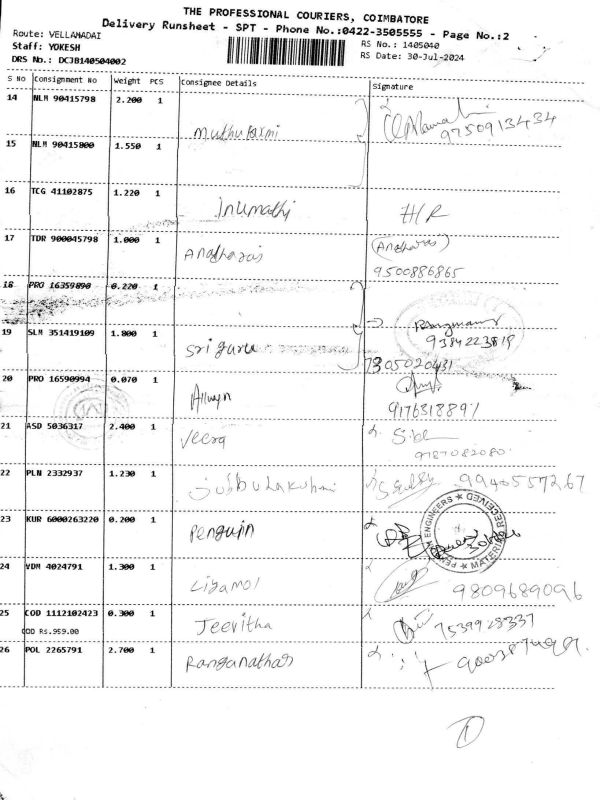 THE PROFESSIONAL COURIERS, COIMBATORE
Delivery Runsheet - SPT - Phone No.:0422-3505555 - Page No.:2
Route: VELLAHADAI
Staff: YOKESH
DRS No.: DCJB140504002
RS No.: 1405040
RS Date: 30-Jul-2024
S No Consignment No Weight PCS Consignee Details Signature
14 NLM 90415798 2.200 1 Muthu Laxmi
9750913434
15 NLM 90415800 1.550 1
16 TCG 41102875 1.220 1 Inumathi H/R
17 TDR 900045798 1.000 1 Anatharas (Anatharas)
9500886865
18 PRO 16359890 0.220 1
19 SLM 351419109 1.800 1 Sri guru
9384223818
7305020431
20 PRO 16590994 0.070 1 Allwyn
9176318891
21 ASD 5036317 2.400 1 Veera
9787082080
22 PLN 2332937 1.230 1 9940557267
23 KUR 6000263220 0.200 1 Penguin
ENGINEERS ★ MATERIAL RECEIVED ★
24 VDM 4024791 1.300 1 Ligamol 9809689096
25 COD 1112102423 0.300 1 Jeevitha 7539928337
COD Rs.959.00
26 POL 2265791 2.700 1 Ranganathan
1